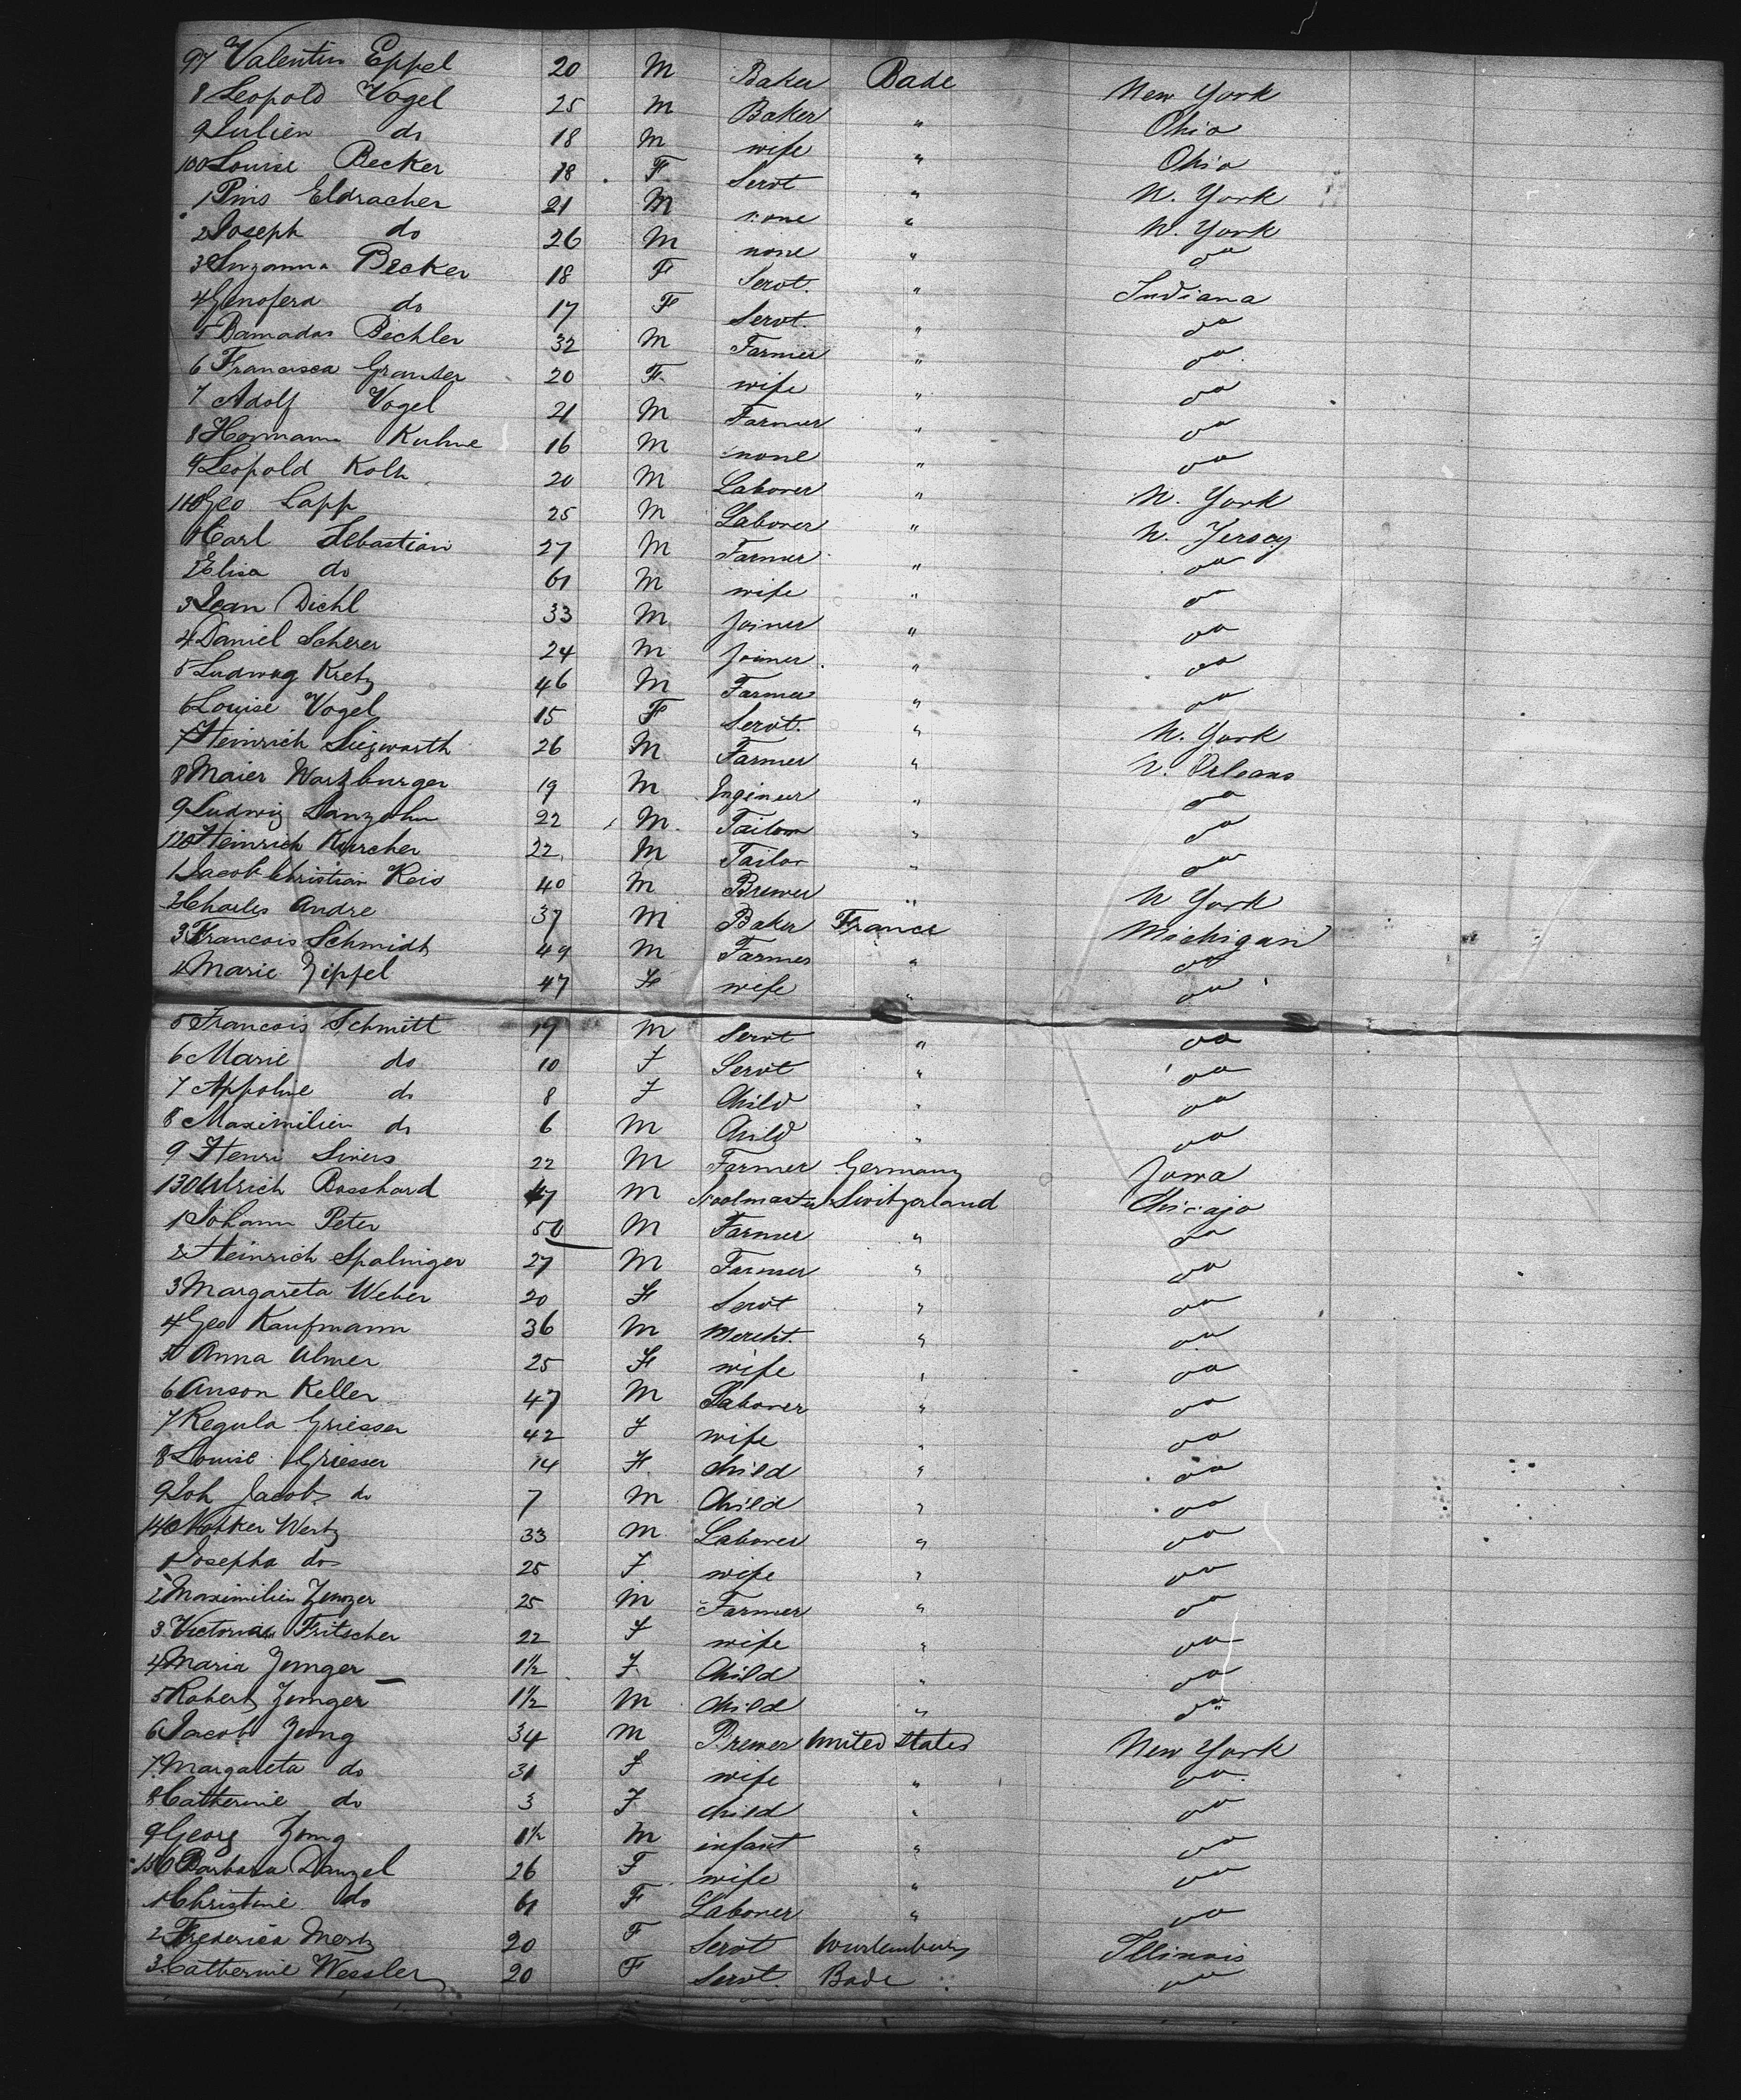 97 Valentin Eppel 20 M Baker Bade New York
8 Leopold Vogel 25 M Baker " Ohio
9 Julien do 18 M wife " Ohio
100 Louise Becker 18 F Servt " N. York
1 Pius Eldracher 21 M none " N. York
2 Joseph do 26 M none " do
3 Suzanna Becker 18 F Servt. " Indiana
4 Genofera do 17 F Servt. " do
5 Damadas Bechler 32 M Farmer " do
6 Francisca 20 F wife " do
7 Adolf Vogel 21 M Farmer " do
8 Hermann Kuhne 16 M none " do
9 Leopold Kolh 20 M Laborer " N. York
110 Geo Lapp 25 M Laborer " N. Jersey
1 Carl Sebastian 27 M Farmer " do
2 Elisa do 61 M wife " do
3 Jean Diehl 33 M Joiner " do
4 Daniel Scherer 24 M Joiner " do
5 Ludwig Kretz 46 M Farmer " do
6 Louise Vogel 15 F Servt. " N. York
7 Heinrich Siegwarth 26 M Farmer " N. Orleans
8 Maier Warzburger 19 M Engineer " do
9 Ludwig 22 M Tailor " do
120 Heinrich Karcher 22 M Tailor " do
1 Jacob Christian Keis 40 M Brewer " N York
2 Charles Andre 37 M Baker France Michigan
3 Francois Schmidt 49 M Farmer " do
4 Marie Zippel 47 F wife " do
5 Francois Schmitt 19 M Servt " do
6 Marie do 10 F Servt " do
7 Appoline do 8 F Child " do
8 Maximilien do 6 M Child " do
9 Henri Siners 22 M Farmer Germany Iowa
130 Ulrich Bosshard 47 M Scoolmaster Switzerland Chicago
1 Johann Peter 50 M Farmer " do
2 Heinrich Spalinger 27 M Farmer " do
3 Margareta Weber 20 F Servt " do
4 Geo Kaufmann 36 M Mercht. " do
5 Anna Ulmer 25 F wife " do
6 Anson Keller 47 M Laborer " do
7 Regula Griesser 42 F wife " do
8 Louise Griesser 14 F. child " do
9 Joh Jacob do 7 M Child " do
140 Notker Wertz 33 M Laborer " do
1 Josepha do 25 F wife " do
2 Maximilien Zunger 25 M Farmer " do
3 Victoria Fritscher 22 F wife " do
4 Maria Zunger 1½ F Child " do
5 Robert Zunger 1½ M child " do
6 Jacob Zung 34 M Brewer United States New York
7 Margareta do 31 F wife " do
8 Catherine do 3 F child " do
9 Georg Zung 1½ M infant " do
150 Barbara Danzel 26 F wife " do
1 Christine do 61 F Laborer " do
2 Frederica Mertz 20 F Servt Wurtemburg Illinois
3 Catherine Wessler 20 F Servt. Bade do